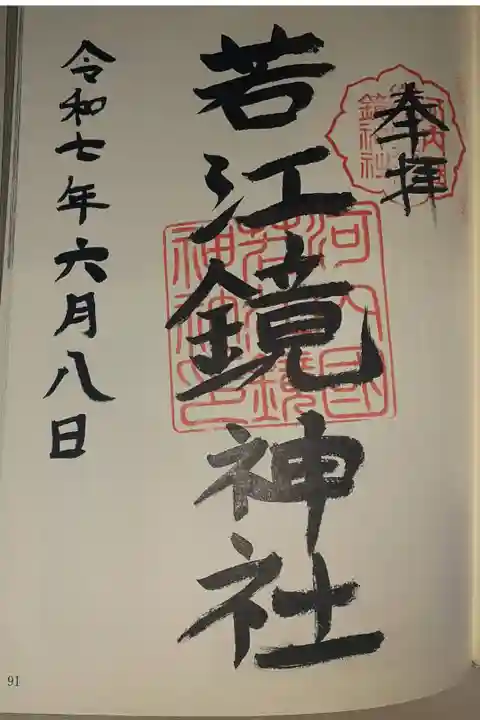 奉拝
若江鏡神社
令和七年六月八日
91